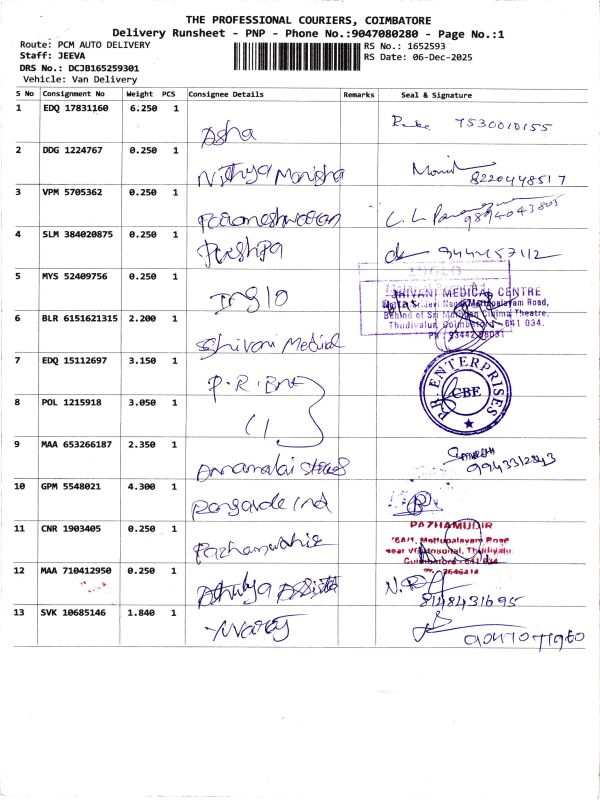 THE PROFESSIONAL COURIERS, COIMBATORE
Delivery Runsheet - PNP - Phone No.:9047080280 - Page No.:1
Route: PCM AUTO DELIVERY
RS No.: 1652593
Staff: JEEVA
RS Date: 06-Dec-2025
DRS No.: DCJB165259301
Vehicle: Van Delivery
S No Consignment No Weight PCS Consignee Details Remarks Seal & Signature
1 EDQ 17831160 6.250 1
Asha 7530010155
2 DDG 1224767 0.250 1
Nithya Monisha 8220448517
3 VPM 5705362 0.250 1
Parameshwaran 9894043805
4 SLM 384020875 0.250 1
Pushpa
5 MYS 52409756 0.250 1
Inglo
SHIVANI MEDICAL CENTRE
Mettupalayam Road,
Behind of Sri Cinima Theatre,
Thudivalur, Coimbatore - 641 034.
6 BLR 6151621315 2.200 1
Shivani Medical
7 EDQ 15112697 3.150 1
P.R. Ent
P.R. ENTERPRISES
CBE
8 POL 1215918 3.050 1
9 MAA 653266187 2.350 1
Annamalai 9943312843
10 GPM 5548021 4.300 1
Ind
11 CNR 1903405 0.250 1
PAZHAMUDIR
Mettupalayam Road
Coimbatore - 641 034
12 MAA 710412950 0.250 1
8148431695
13 SVK 10685146 1.840 1
Yuvaraj